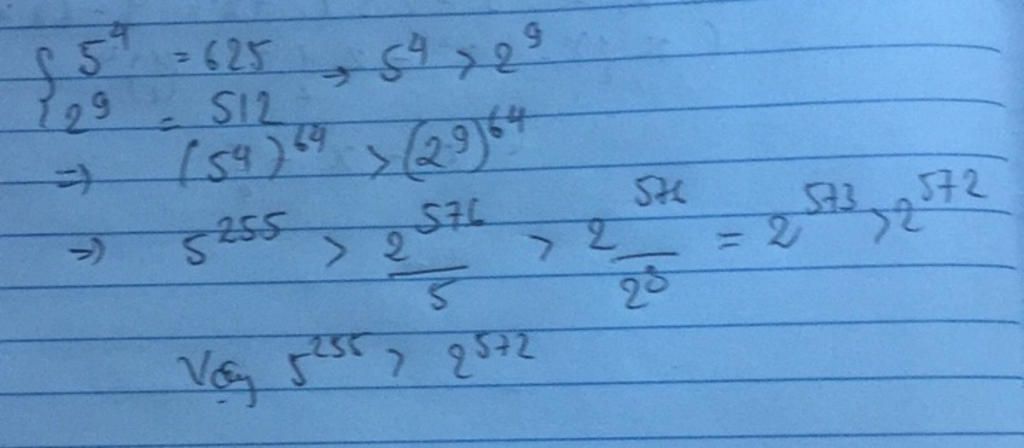 { 5^4 = 625 → 5^4 > 2^9
2^9 = 512
⇒ (5^4)^64 > (2^9)^64
⇒ 5^255 > 2^576/5 > 2^576/2^3 = 2^573 > 2^572
Vậy 5^255 > 2^572